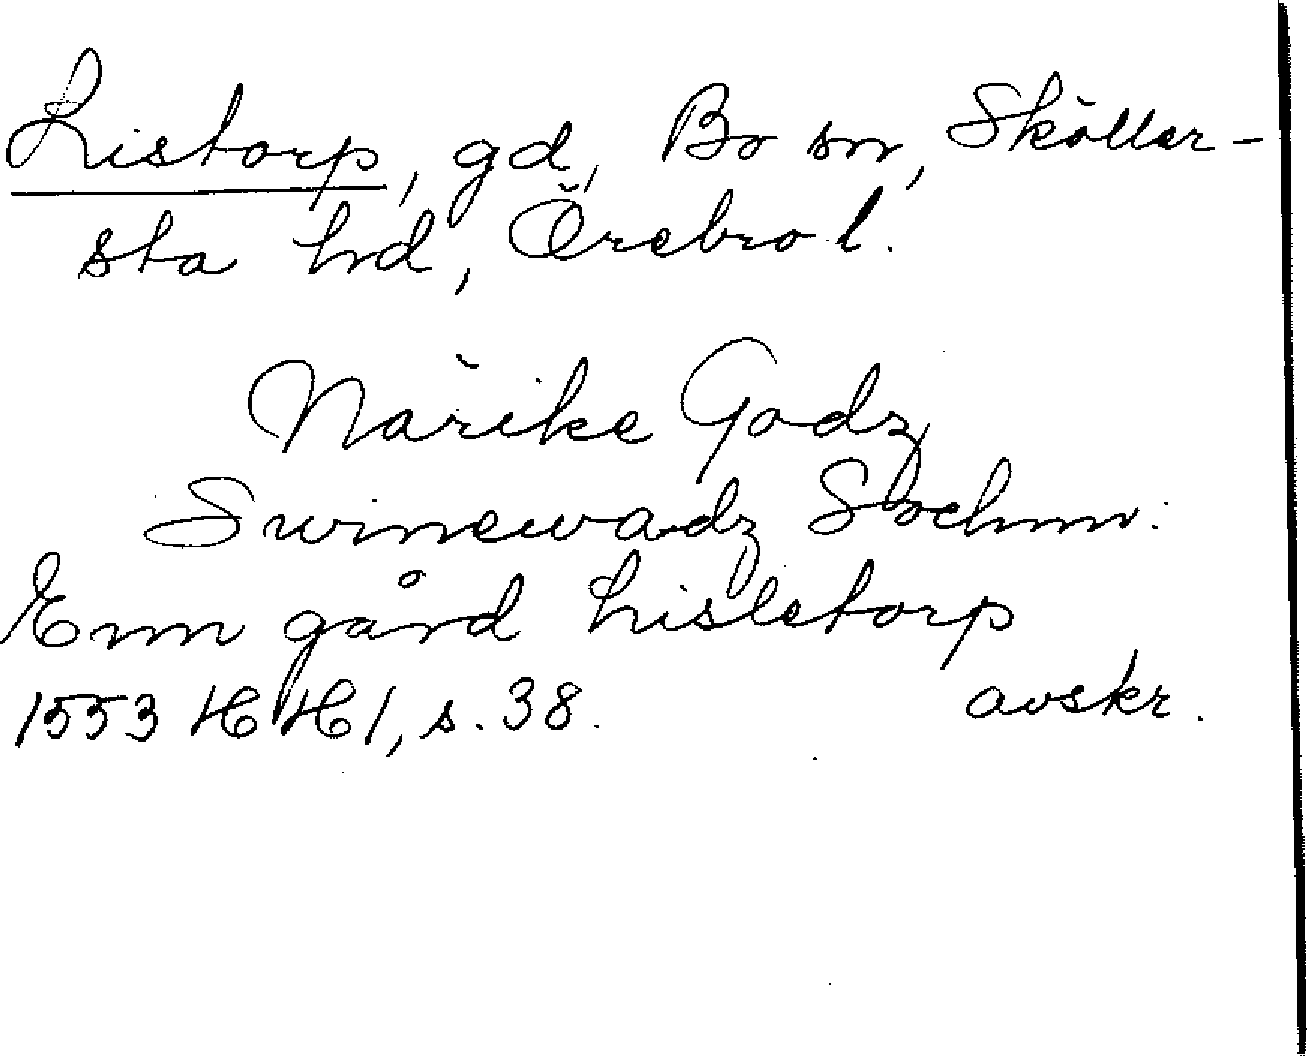 Listorp, gd, Bo sn, Sköller-
sta hd, Örebro l.
Närike Godz
Swinewadz Sochnn:
Enn gård Lisletorp
1553 HH1, s. 38. avskr.